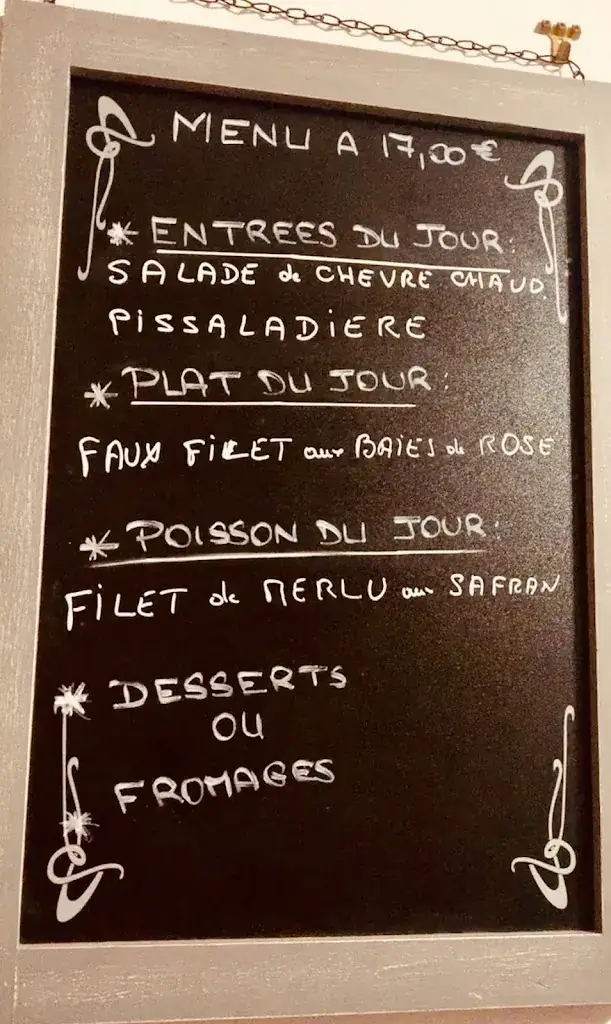 MENU A 17,00 €
* ENTREES DU JOUR:
SALADE de CHEVRE CHAUD
PISSALADIERE
* PLAT DU JOUR:
FAUX FILET aux BAIES de ROSE
* POISSON DU JOUR:
FILET de MERLU au SAFRAN
* DESSERTS
OU
* FROMAGES